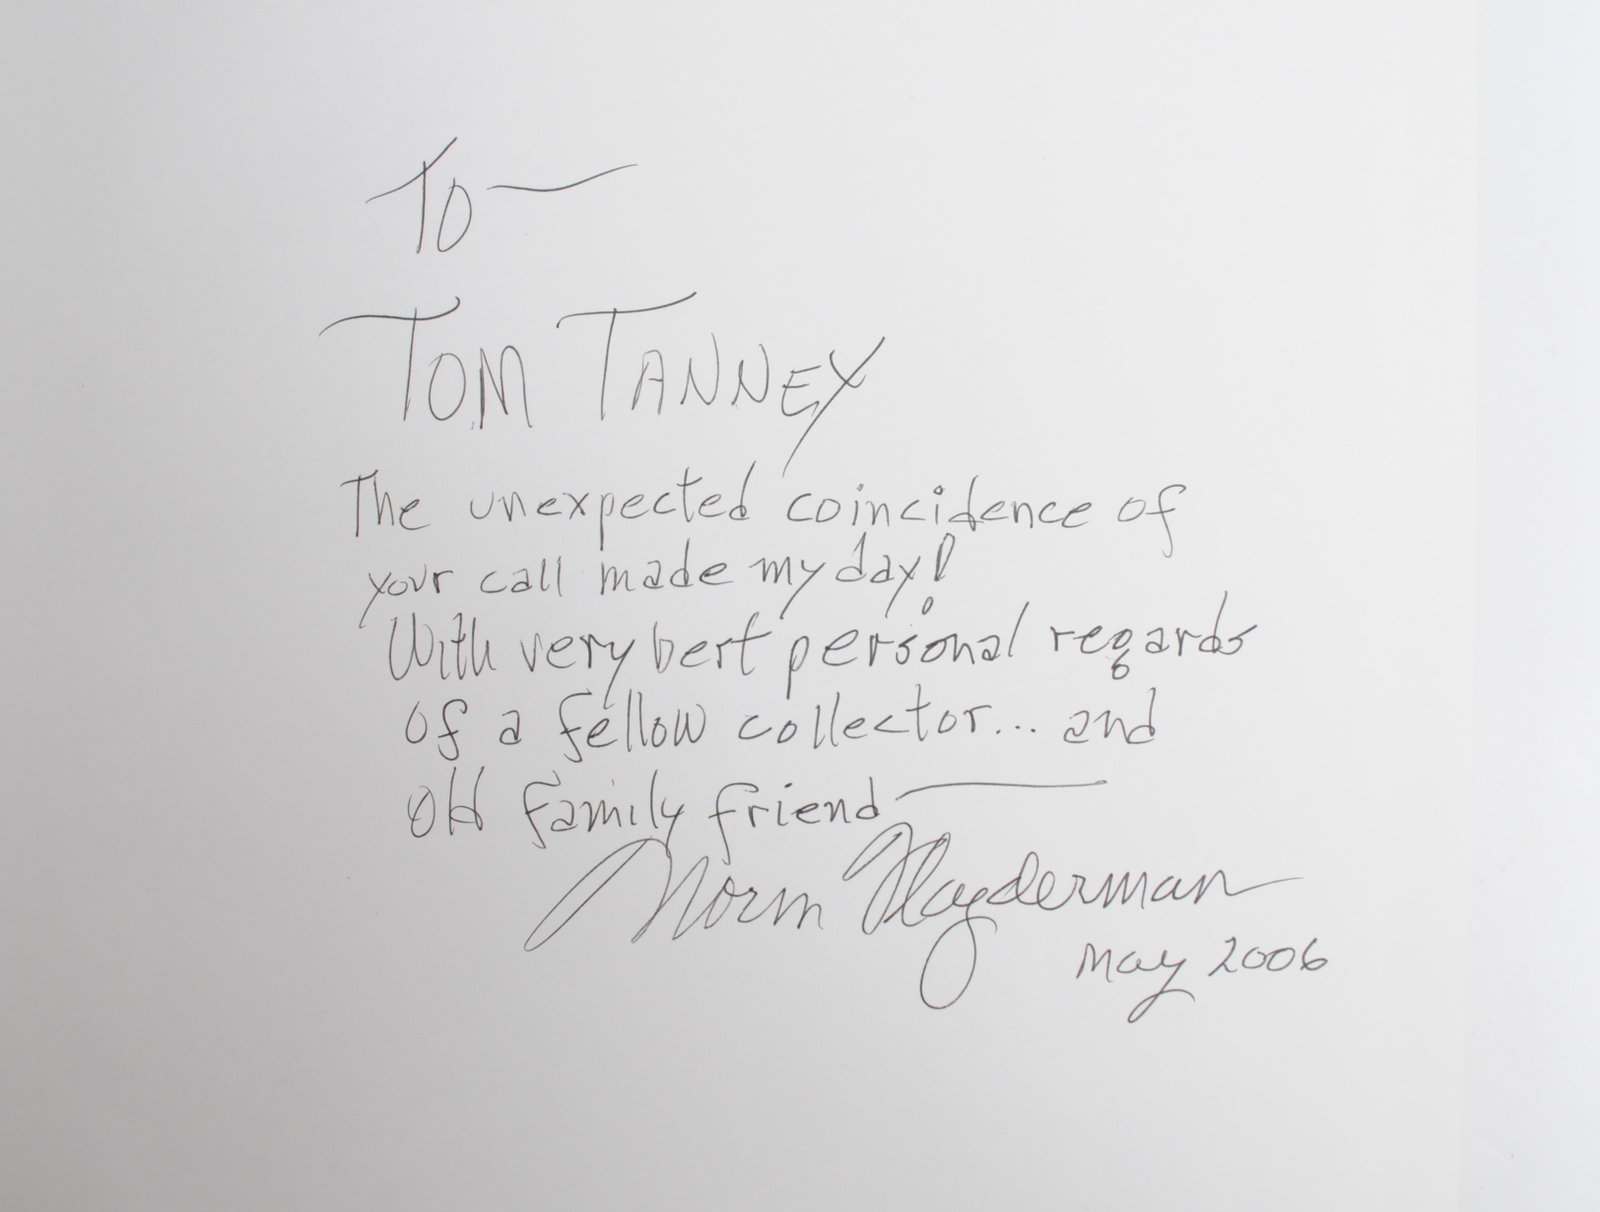 To —
TOM TANNEY
The unexpected coincidence of
your call made my day!
With very best personal regards
of a fellow collector... and
old family friend —
Norm Flayderman
May 2006